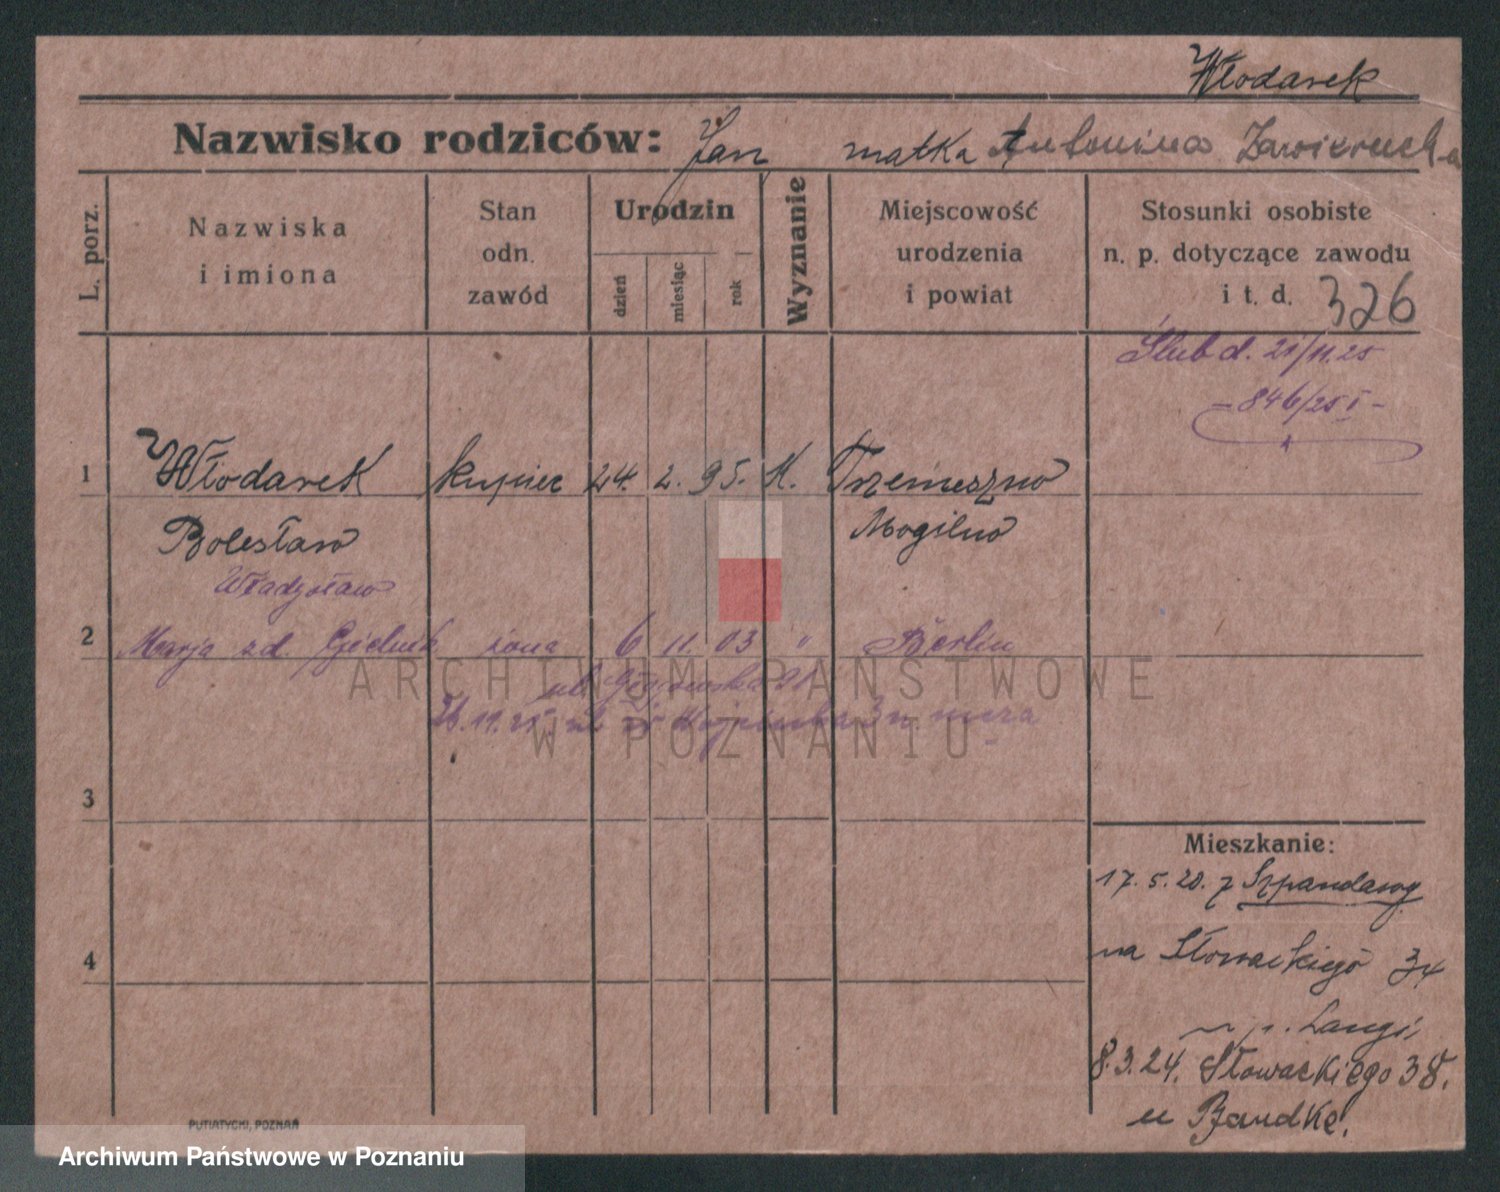 Włodarek
Nazwisko rodziców: Jan matka Antonina Zawierucha
L. porz.
Nazwiska i imiona
Stan odn. zawód
Urodzin
dzień
miesiąc
rok
Wyznanie
Miejscowość urodzenia i powiat
Stosunki osobiste
n. p. dotyczące zawodu
i t. d. 326
Ślub d. 21/11.25
- 846/25 I -
1 Włodarek kupiec 24. 2. 95. K. Trzemeszno
Bolesław Mogilno
Władysław
2 Marja zd. żona 6 11. 03 " Berlin
ul.
11.25
3
4
Mieszkanie:
17.5.20. z Szpandawy
na Słowackiego 34
u p. Langi,
8.3.24. Słowackiego 38.
u Bandke!
PUTIATYCKI, POZNAŃ
ARCHIWUM PAŃSTWOWE
W POZNANIU
Archiwum Państwowe w Poznaniu